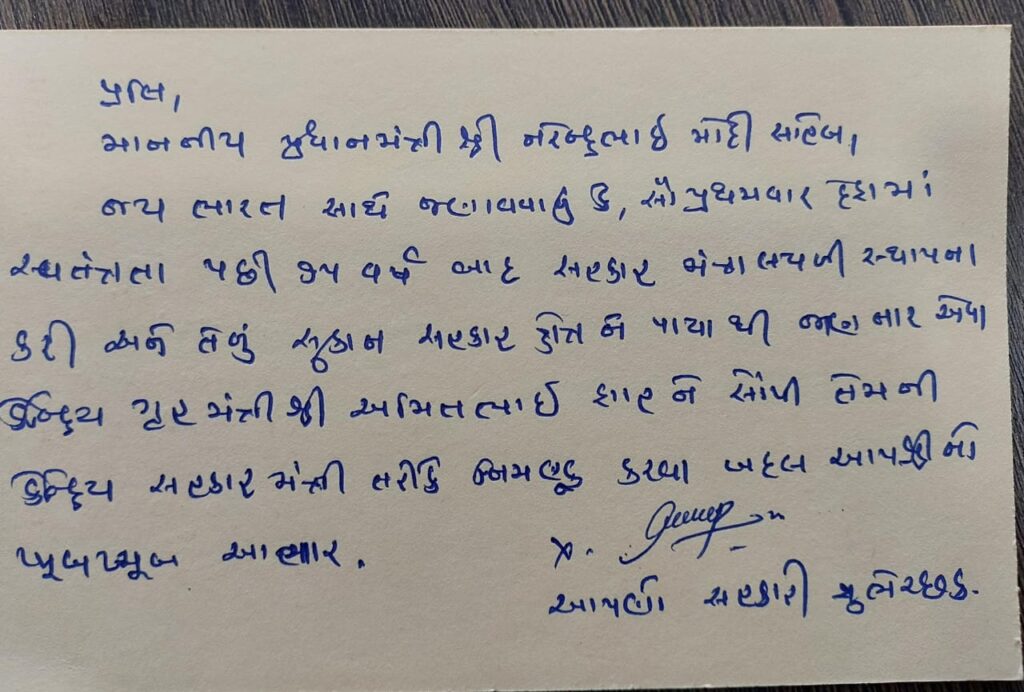 પ્રતિ,
માનનીય પ્રધાનમંત્રી શ્રી નરેન્દ્રભાઇ મોદી સાહેબ,
જય ભારત સાથે જણાવવાનું કે, સૌપ્રથમવાર દેશમાં
સ્વતંત્રતા પછી ૭૫ વર્ષ બાદ સહકાર મંત્રાલયની સ્થાપના
કરી અને તેનું સૂકાન સહકાર ક્ષેત્રને પાયાથી જાણનાર એવા
કેન્દ્રિય ગૃહમંત્રીશ્રી અમિતભાઇ શાહને સોંપી તેમની
કેન્દ્રિય સહકાર મંત્રી તરીકે નિમણૂક કરવા બદલ આપશ્રીનો
ખૂબખૂબ આભાર.
આપણો સહકારી શુભેચ્છક.